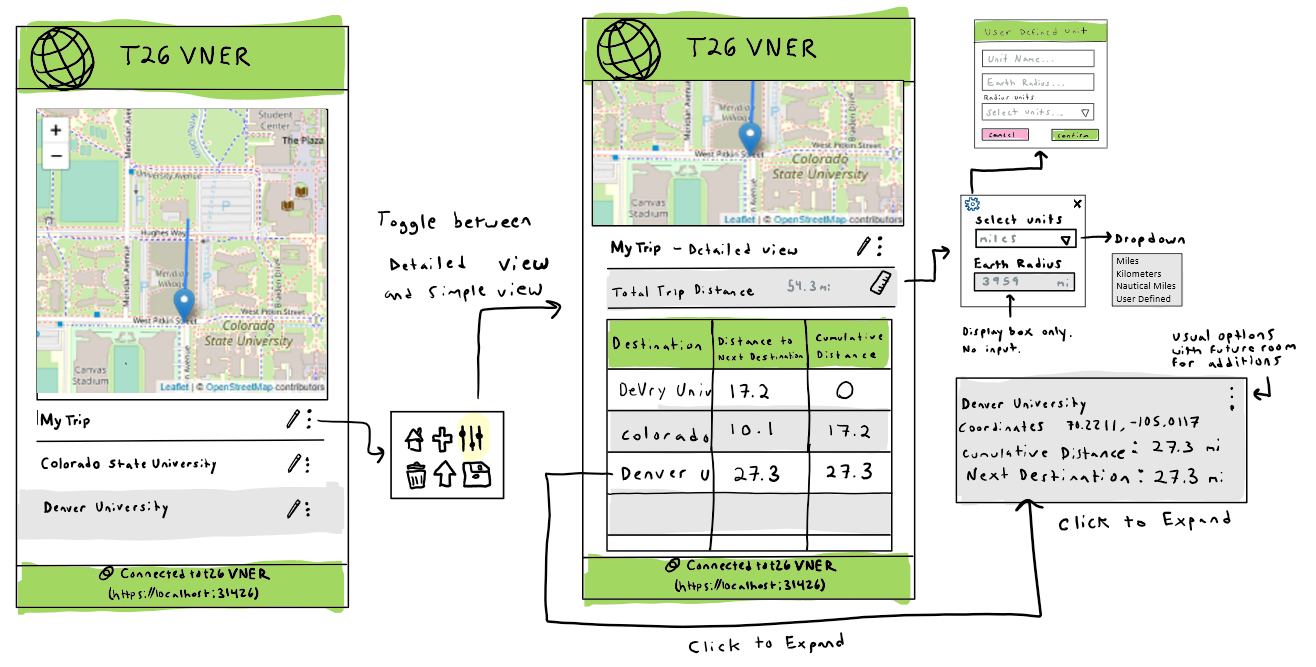 T26 VNER
+
−
Student
Center
The Plaza
Meridian Avenue
University Avenue
P
P
Hughes Way
Meridian
Village
West Pitkin Street
Colorado
State University
Canvas
Stadium
Leaflet | © OpenStreetMap contributors
My Trip
Colorado State University
Denver University
Connected to t26 VNER
(https://localhost:31426)
Toggle between
Detailed view
and simple view
T26 VNER
Meridian
Village
Braiden Drive
West Pitkin Street
Colorado
State University
Canvas
Stadium
Leaflet | © OpenStreetMap contributors
My Trip - Detailed view
Total Trip Distance 54.3 mi
Destination
Distance to
Next Destination
Cumulative
Distance
DeVry Univ 17.2 0
Colorado 10.1 17.2
Denver U 27.3 27.3
Connected to t26 VNER
(https://localhost:31426)
Click to Expand
User Defined Unit
Unit Name...
Earth Radius...
Radius units
Select units...
Cancel
Confirm
x
Select units
miles
Earth Radius
3959 mi
Dropdown
Miles
Kilometers
Nautical Miles
User Defined
Display box only.
No input.
Usual options
with future room
for additions
Denver University
Coordinates 70.2211, -105.0117
Cumulative Distance: 27.3 mi
Next Destination: 27.3 mi
Click to Expand